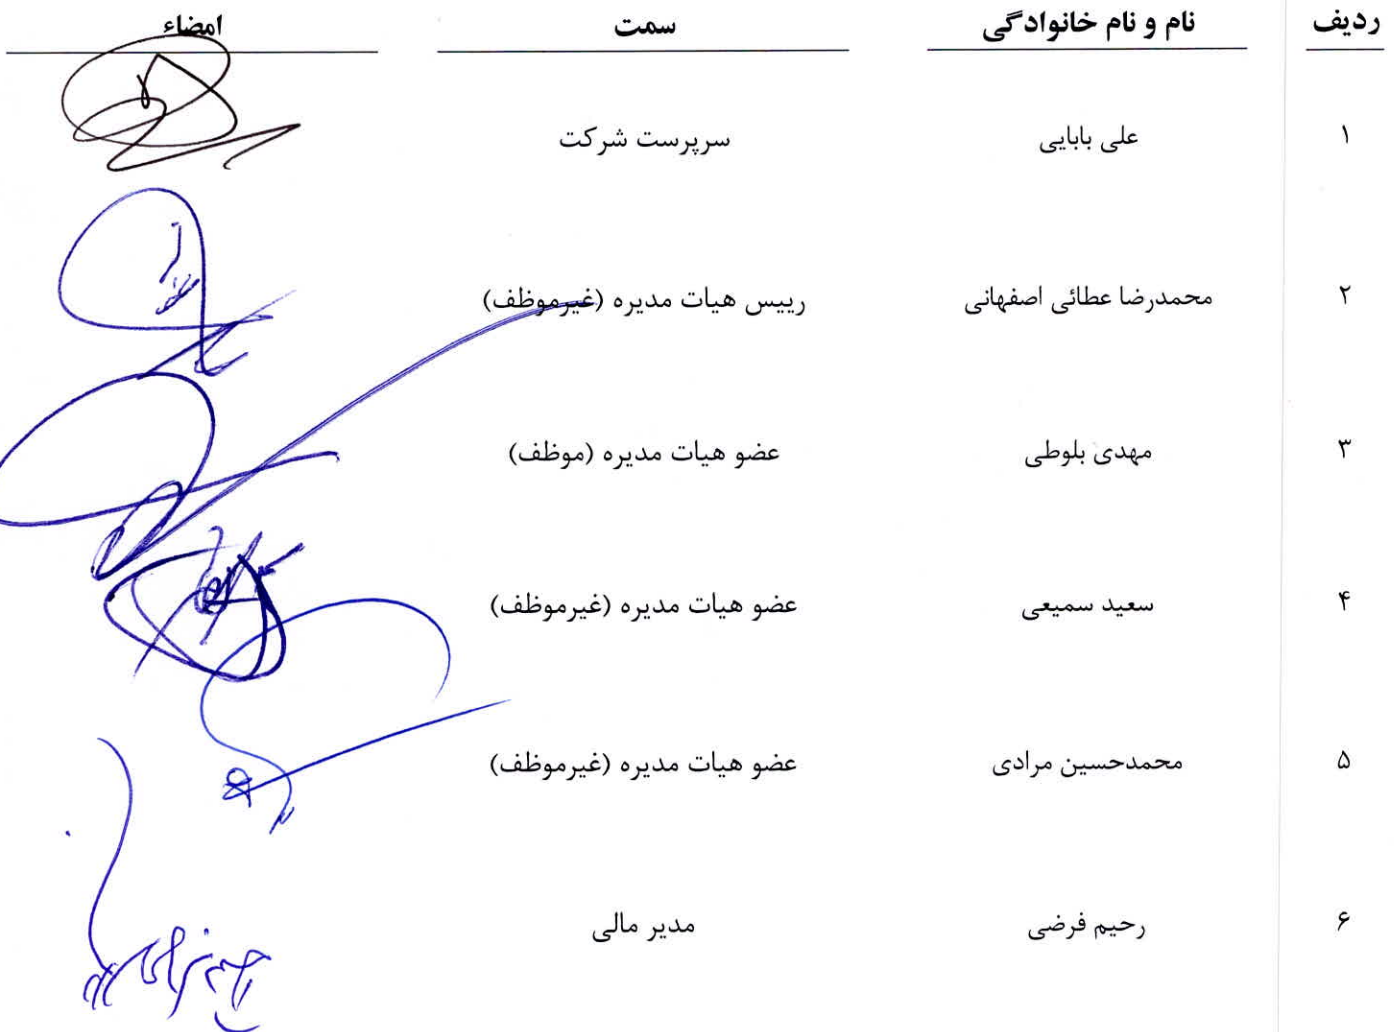 ردیف نام و نام خانوادگی سمت امضاء
۱ علی بابایی سرپرست شرکت
۲ محمدرضا عطائی اصفهانی رییس هیات مدیره (غیرموظف)
۳ مهدی بلوطی عضو هیات مدیره (موظف)
۴ سعید سمیعی عضو هیات مدیره (غیرموظف)
۵ محمدحسین مرادی عضو هیات مدیره (غیرموظف)
۶ رحیم فرضی مدیر مالی